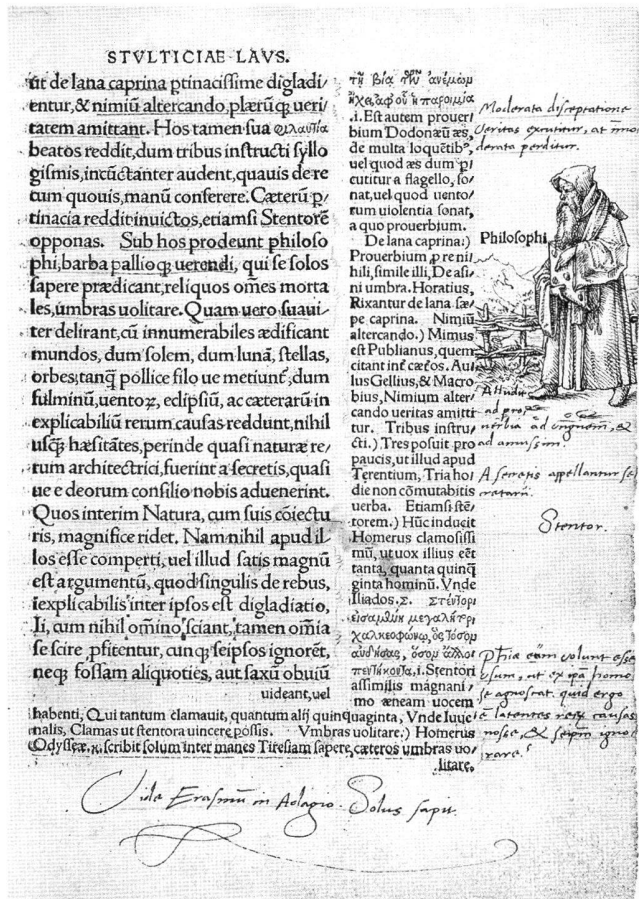 STVLTICIAE LAVS.
ut de lana caprina ptinacissime digladi/
entur,& nimiũ altercando, plærũq; ueri/
tatem amittant. Hos tamen sua φιλαυτία
beatos reddit, dum tribus instructi syllo
gismis, incũctanter audent, quauis de re
cum quouis, manũ conferere. Cæterũ p/
tinacia reddit inuictos, etiamsi Stentorẽ
opponas. Sub hos prodeunt philoso
phi, barba pallioq; uerendi, qui se solos
sapere prædicant, reliquos oẽs morta
les, umbras uolitare. Quam uero suaui/
ter delirant, cũ innumerabiles ædificant
mundos, dum solem, dum lunã, stellas,
orbes, tanq̃ pollice filo ue metiunt̃, dum
fulminũ, uentoꝝ, eclipsiũ, ac cæterarũ in
explicabiliũ rerum causas reddunt, nihil
usq̃; hæsitãtes, perinde quasi naturæ re/
rum architectrici, fuerint a secretis, quasi
ue e deorum consilio nobis aduenerint.
Quos interim Natura, cum suis cõiectu
ris, magnifice ridet. Nam nihil apud il/
los esse comperti, uel illud satis magnũ
est argumentũ, quod singulis de rebus,
iexplicabilis inter ipsos est digladiatio,
Ii, cum nihil oĩno sciant, tamen oĩa
se scire, pfitentur, cunq; seipsos ignorẽt,
neq; fossam aliquoties, aut saxũ obuiũ
uideant, uel
τῇ βία τῶν ἀνέμων
ἠχεῖ, ἀφ' οὗ ἡ παροιμία
.i. Est autem prouer/
bium Dodonæũ æs,
de multa loquẽtibꝰ,
uel quod æs dum p/
cutitur a flagello, so/
nat, uel quod uento/
rum uiolentia sonat,
a quo prouerbium.
De lana caprina:)
Prouerbium p re ni
hili, simile illi, De asi/
ni umbra. Horatius,
Rixantur de lana sæ/
pe caprina. Nimiũ
altercando.) Mimus
est Publianus, quem
citant int̃ cæt̃os. Au/
lus Gellius, & Macro
bius, Nimium alter/
cando ueritas amitti
tur. Tribus instru/
cti.) Tres posuit pro
paucis, ut illud apud
Terentium, Tria ho/
die non cõmutabitis
uerba. Etiamsi stẽ/
torem.) Hũc inducit
Homerus clamosissi
mũ, ut uox illius eẽt
tanta, quanta quinq̃
ginta hominũ. Vnde
Iliados. ε. Στέντορι
εἰσαμένη μεγαλήτορι
χαλκεοφώνῳ, ὃς τόσον
αὐδήσασχ, ὅσον ἄλλοι
πεντήκοντα, .i. Stentori
assimilis magnani/
mo æneam uocem
habenti, Qui tantum clamauit, quantum alij quinquaginta, Vnde Iuue/
nalis, Clamas ut stentora uincere possis. Vmbras uolitare.) Homerus
Odysseæ. κ. scribit solum inter manes Tiresiam sapere, cæteros umbras uo/
litare.
Moderata disceptatione
veritas excutitur, at immo
derata perditur.
Philosophi
Alludit
ad prov
verbia ad unguem, &
ad amussim.
A secretis appellantur se
cretarii.
Stentor.
Phia eũm volunt esse
usum, ut ex ipa homo
se agnoscat. quid ergo
ẽ latentes rerũ causas
nosse, & seipm igno
rare?
Vide Erasmũ in Adagio. Solus sapit.